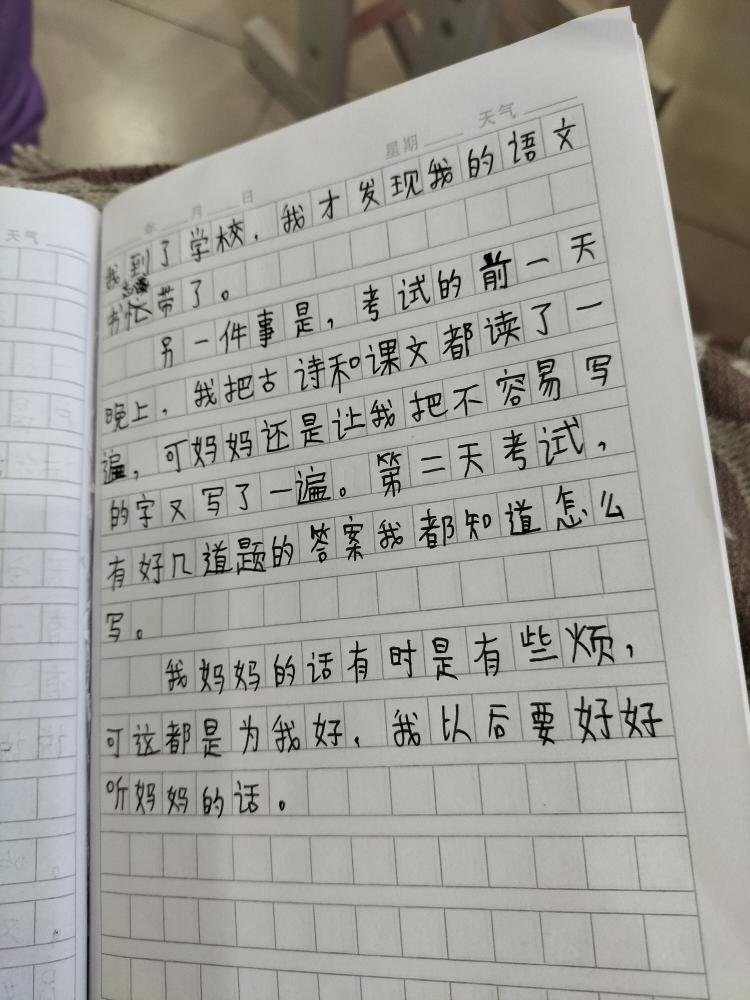 年 月 日 星期 天气
天气
我到了学校，我才发现我的语文
书忘带了。
另一件事是，考试的前一天
晚上，我把古诗和课文都读了一
遍，可妈妈还是让我把不容易写
的字又写了一遍。第二天考试，
有好几道题的答案我都知道怎么
写。
我妈妈的话有时是有些烦，
可这都是为我好，我以后要好好
听妈妈的话。